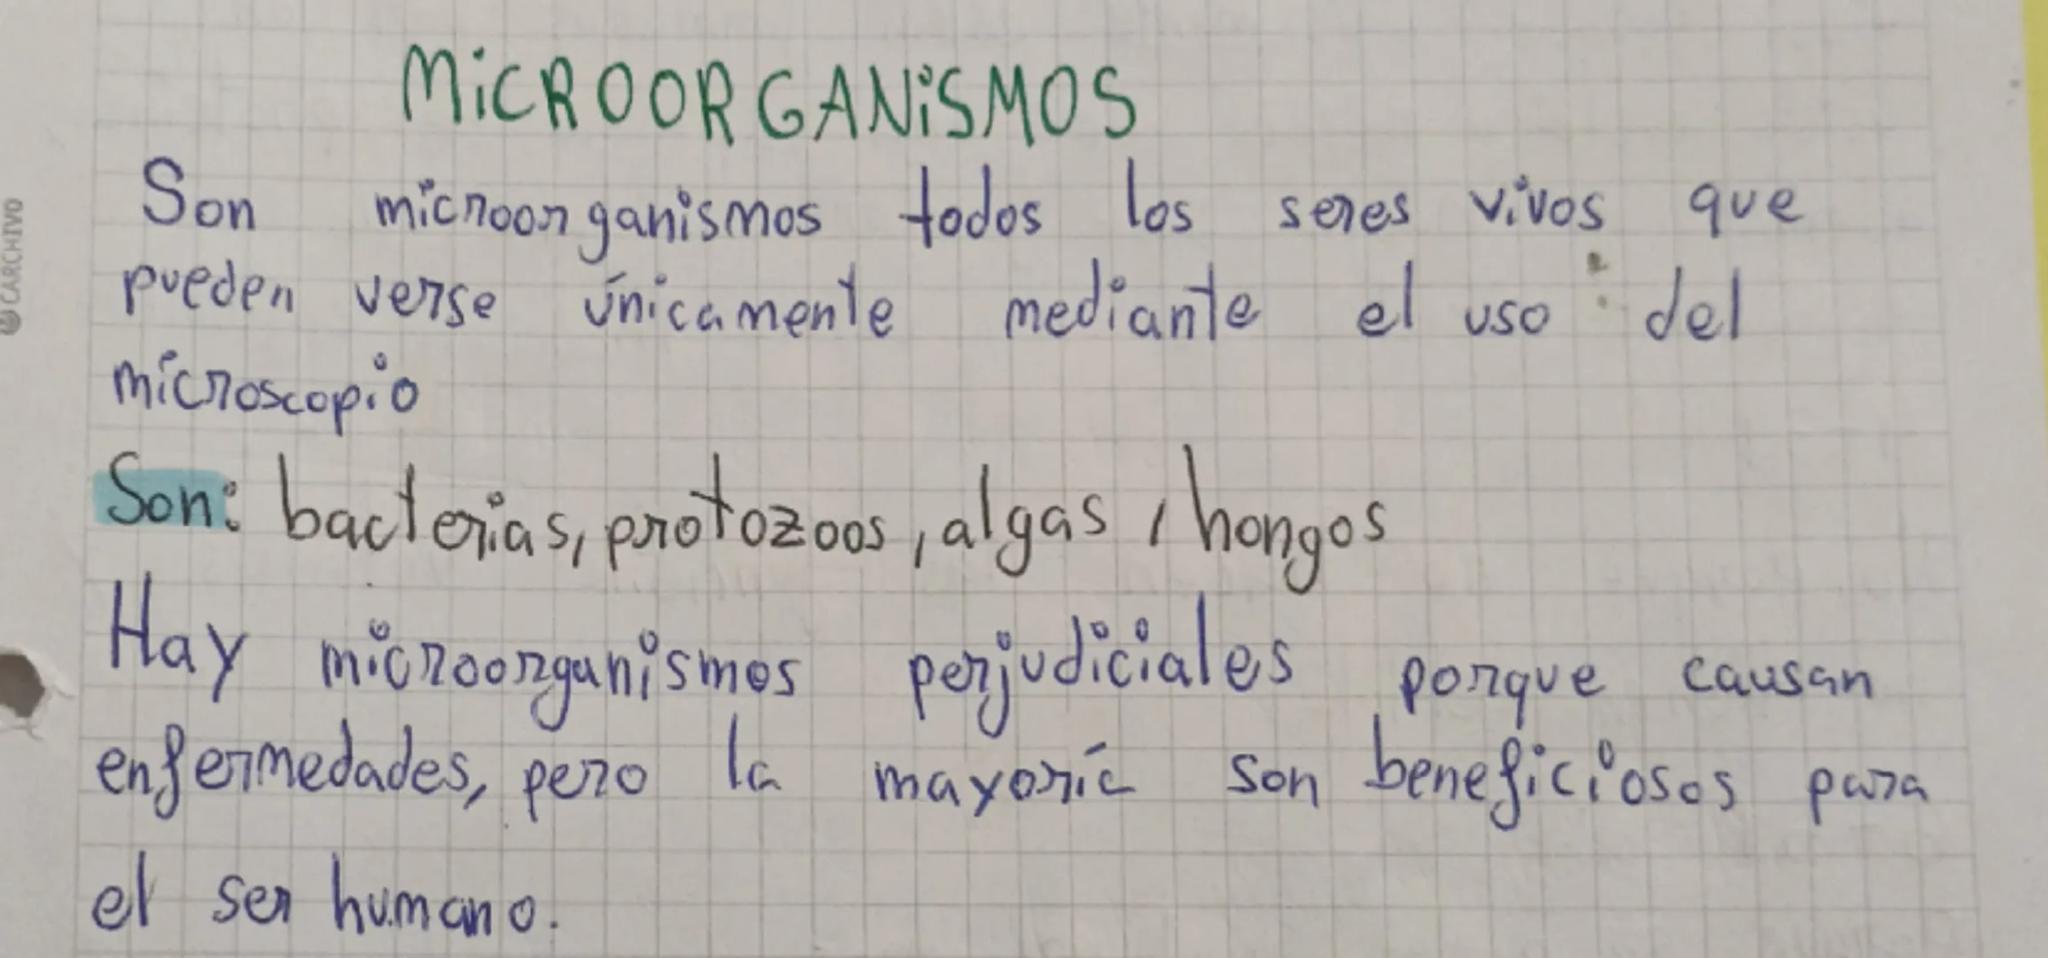 MiCROORGANiSMOS
Son microorganismos todos los seres vivos que
pueden verse únicamente mediante el uso del
microscopio
Son: bacterias, protozoos, algas, hongos
Hay microorganismos perjudiciales porque causan
enfermedades, pero la mayoría son beneficiosos para
el ser humano.
CARCHIVO